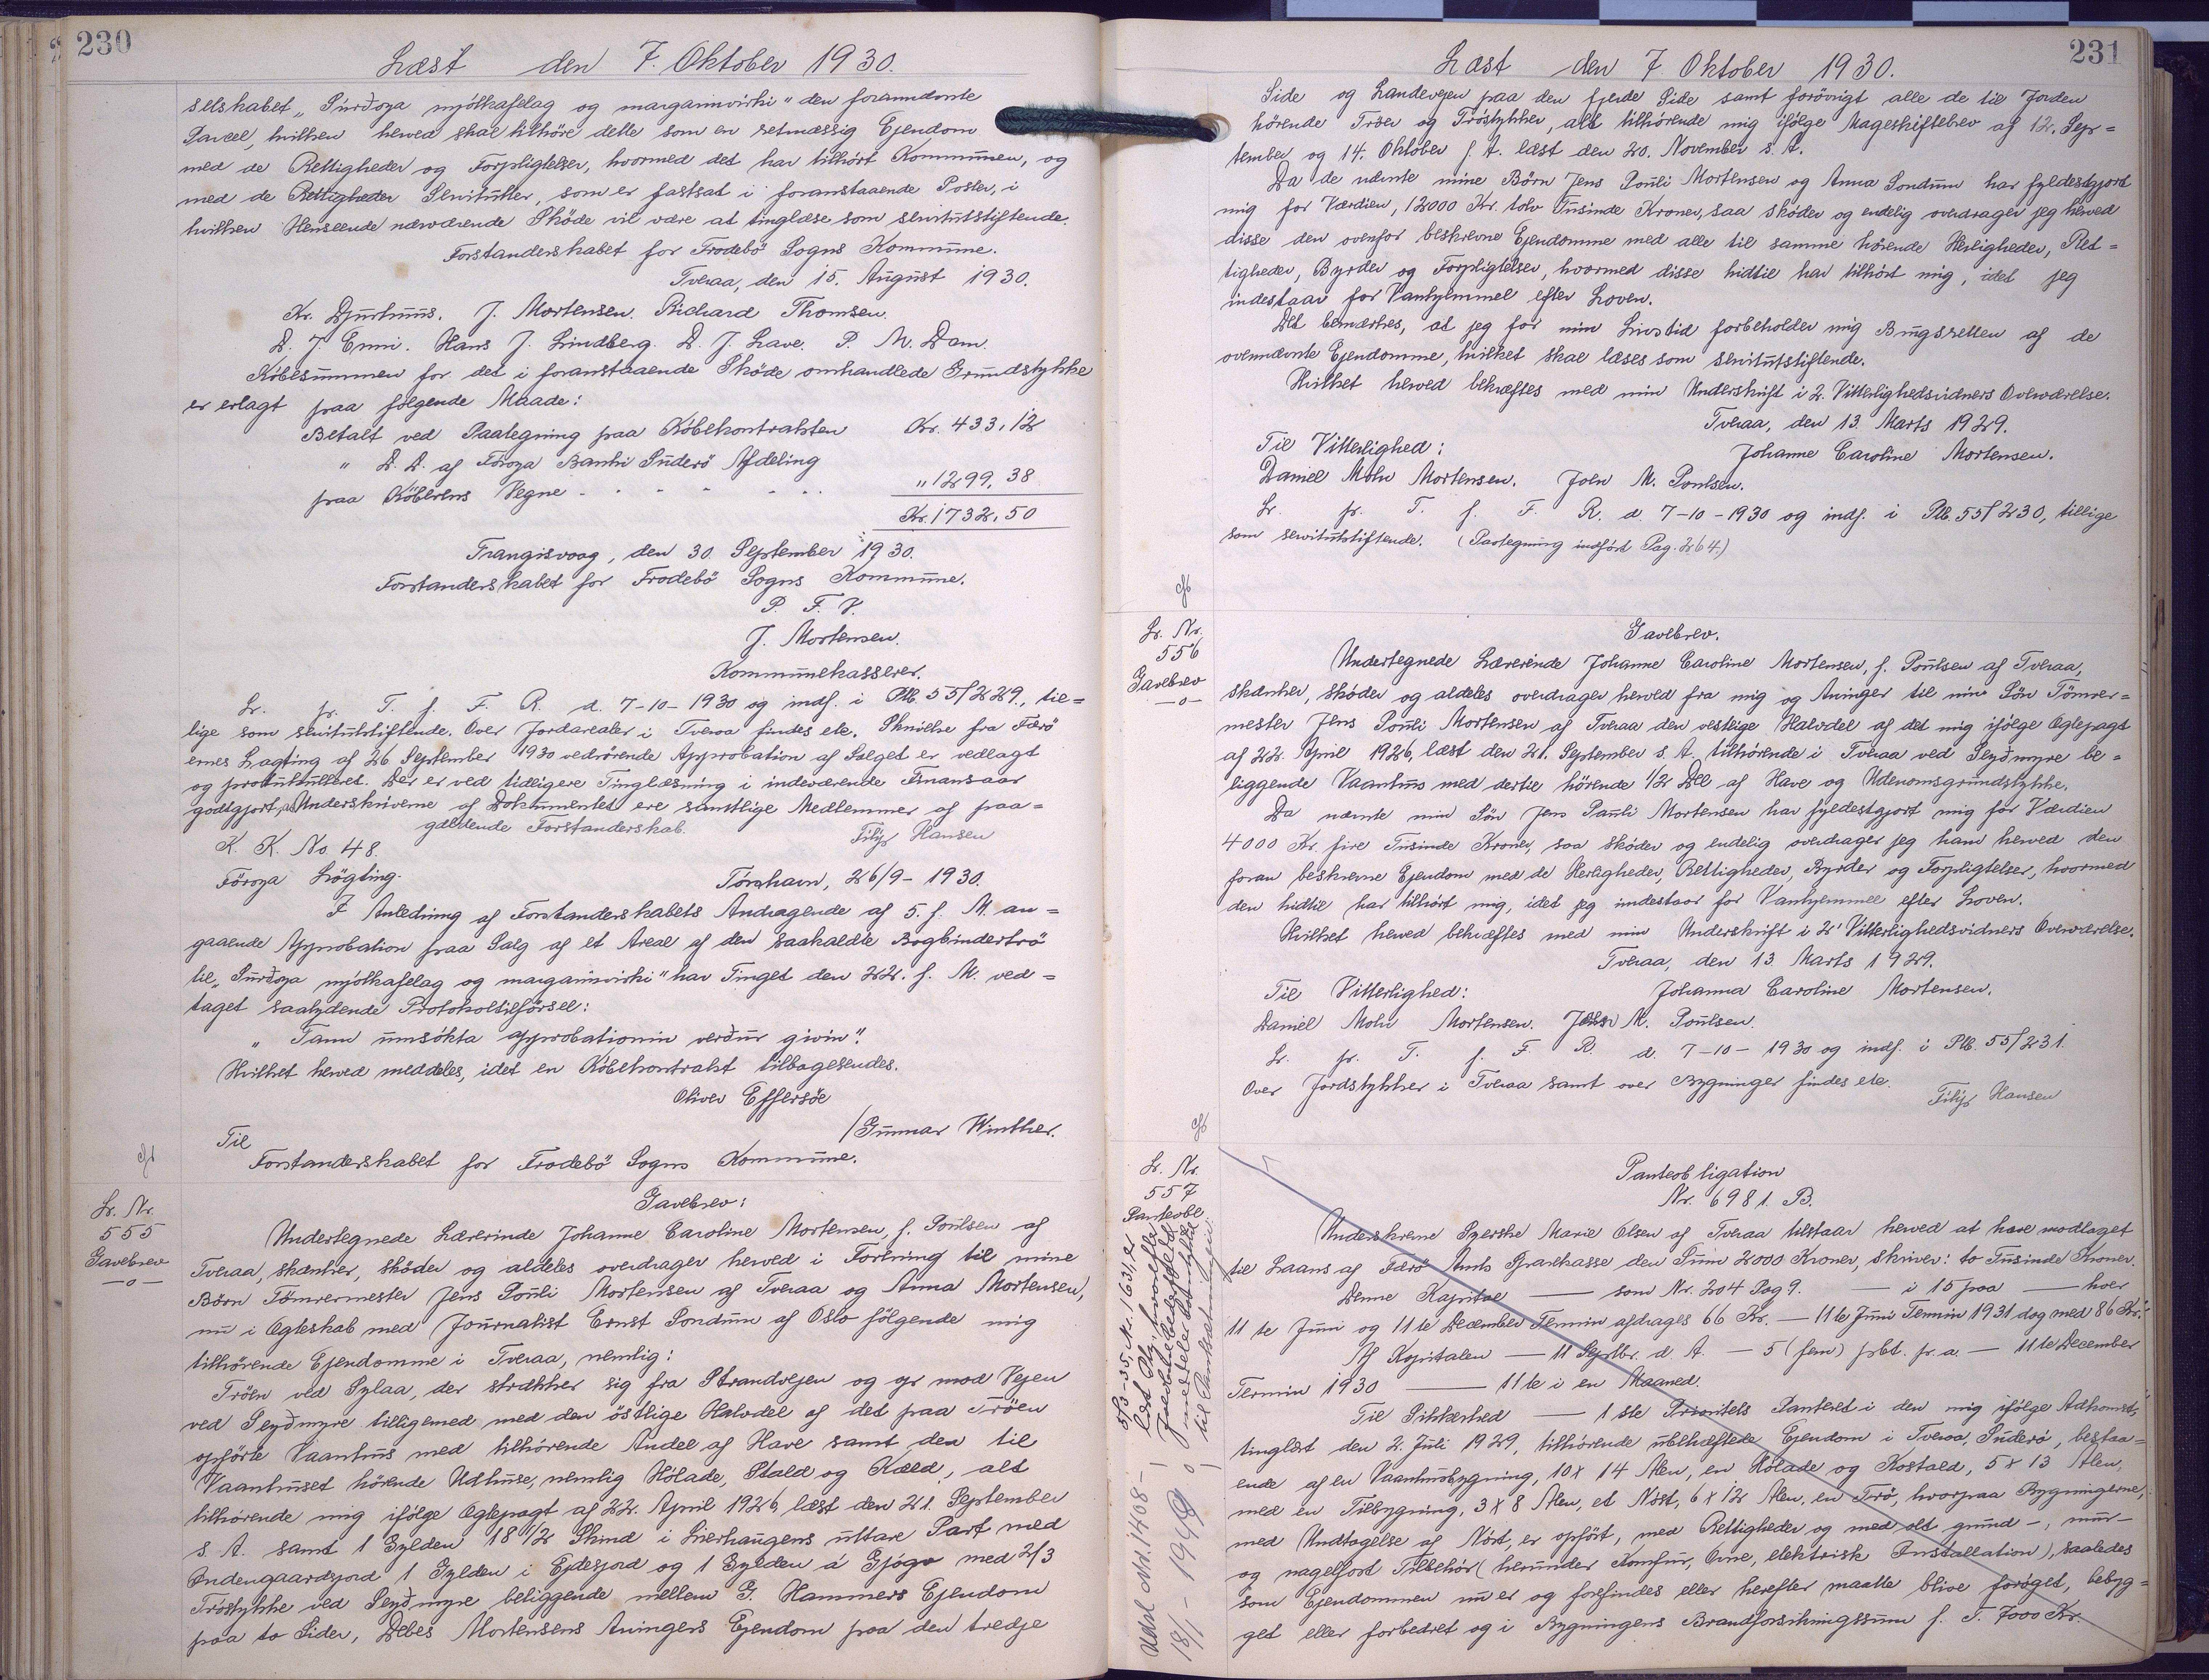 230
Læst den 7. Oktober 1930.
selskabet „Sürðoya mjólkafelag og margarinvirki" den forannævnte
Parcel, hvilken herved skal tilhöre dette som en retmæssig Ejendom
med de Rettigheder og Forpligtelser, hvormed det har tilhört Kommunen, og
med de Rettigheder Servitutter, som er fastsat i foranstaaende Poster, i
hvilken Henseende nærværende Sköde vil være at tinglæse som servitutstiftende.
Forstanderskabet for Frodebö Sogns Kommune.
Tveraa, den 15. August 1930.
Kr. Djurhuus. J. Mortensen. Richard Thomsen.
D. J. Enni. Hans J. Lindberg. D. J. Lave. P. M. Dam.
Köbesummen for det i foranstaaende Sköde omhandlede Grundstykke
er erlagt paa fölgende Maade:
Betalt ved Paategning paa Köbekontrakten Kr. 433,12
" D. D. af Föroya Banki Suderö Afdeling
paa Köberens Vegne - - - - - - " 1299,38
Kr. 1732,50
Trangisvaag, den 30. September 1930.
Forstanderskabet for Frodebö Sogns Kommune.
P. F. V.
J. Mortensen.
Kommunekasserer.
Lr. pr. T. f. F. R. d. 7-10-1930 og indf. i Ptb. 55/229, til=
lige som servitutstiftende. Over Jordarealer i Tveraa findes etc. Skrivelse fra Færö
ernes Lagting af 26 September 1930 vedrörende Approbation af Salget er vedlagt
og protokulleret. Det er ved tidligere Tinglæsning i indeværende Finansaar
godtgjort, at Underskriverne af Dokumentet ere samtlige Medlemmer af paa=
gældende Forstanderskab. Filip Hansen
K. K. No. 48.
Föroya Lögting. Tórshavn, 26/9-1930.
I Anledning af Forstanderskabets Andragende af 5. f. M. an=
gaaende Approbation paa Salg af et Areal af den saakaldte Bogbindertrö
til „Sürðoya mjólkafelag og margarinvirki" har Tinget den 22. f. M. ved=
taget saalydende Protokoltilförsel:
„Tann umsókta approbationin verður givin".
Hvilket herved meddeles, idet en Köbekontrakt tilbagesendes.
Oliver Effersöe
/Gunnar Winther.
Til
Forstanderskabet for Frodebö Sogns Kommune.
Lr. Nr.
555
Gavebrev
—o—
Gavebrev:
Undertegnede Lærerinde Johanne Caroline Mortensen, f. Poulsen af
Tveraa, skænker, sköder og aldeles overdrager herved i Forening til mine
Börn Tömrermester Jens Pouli Mortensen af Tveraa og Anna Mortensen,
nu i Ægteskab med Journalist Ernst Sondum af Oslo fölgende mig
tilhörende Ejendomme i Tveraa, nemlig:
Tröen ved Sylaa, der strækker sig fra Strandvejen og op mod Vejen
ved Seyðmyre tilligemed med den östlige Halvdel af det paa Tröen
opförte Vaanhus med tilhörende Andel af Have samt den til
Vaanhuset hörende Udhuse, nemlig Hölade, Stald og Kæld, alt
tilhörende mig ifölge Ægtepagt af 22. April 1926, læst den 21. September
s. A. samt 1 Gylden 18 1/2 Skind i Lierhaugens uttare Part med
Indengaardsjord 1 Gylden i Ejdesjord og 1 Gylden á Gjógv med 2/3
Tröstykke ved Seyðmyre beliggende mellem G. Hammers Ejendom
paa to Sider, Debes Mortensens Arvingers Ejendom paa den tredje
231
Læst den 7. Oktober 1930.
Side og Landevejen paa den fjerde Side samt forövrigt alle de til Jorden
hörende Tröer og Tröstykker, alt tilhörende mig ifölge Mageskiftebrev af 12. Sep=
tember og 14. Oktober f. A. læst den 20. November s. A.
Da de nævnte mine Börn Jens Pouli Mortensen og Anna Sondum har fyldestgjort
mig for Værdien, 12000 Kr. tolv Tusinde Kroner, saa sköder og endelig overdrager jeg herved
disse den ovenfor beskrevne Ejendomme med alle til samme hörende Herligheder, Ret=
tigheder, Byrder og Forpligtelser, hvormed disse hidtil har tilhört mig, idet jeg
indestaar for Vanhjemmel efter Loven.
Det bemærkes, at jeg for min Livstid forbeholder mig Brugsretten af de
ovennævnte Ejendomme, hvilket skal læses som servitutstiftende.
Hvilket herved bekræftes med min Underskrift i 2. Vitterlighedsvidners Overværelse.
Tveraa, den 13. Marts 1929.
Til Vitterlighed: Johanne Caroline Mortensen.
Daniel Mohr Mortensen. Joen M. Poulsen.
Lr. pr. T. f. F. R. d. 7-10-1930 og indf. i Ptb. 55/230, tillige
som servitutstiftende. (Paategning indfört Pag. 264.)
Lr. Nr.
556
Gavebrev
—o—
Gavebrev.
Undertegnede Lærerinde Johanne Caroline Mortensen, f. Poulsen af Tveraa,
skænker, sköder og aldeles overdrager herved fra mig og Arvinger til min Sön Tömrer=
mester Jens Pouli Mortensen af Tveraa den vestlige Halvdel af det mig ifölge Ægtepagt
af 22. April 1926, læst den 21. September s. A. tilhörende i Tveraa ved Seyðmyre be=
liggende Vaanhus med dertil hörende 1/2 Del af Have og Udenomsgrundstykke.
Da nævnte min Sön Jens Pauli Mortensen har fyldestgjort mig for Værdien
4000 Kr. fire Tusinde Kroner, saa sköder og endelig overdrager jeg ham herved den
foran beskrevne Ejendom med de Herligheder, Rettigheder, Byrder og Forpligtelser, hvormed
den hidtil har tilhört mig, idet jeg indestaar for Vanhjemmel efter Loven.
Hvilket herved bekræftes med min Underskrift i 2' Vitterlighedsvidners Overværelse.
Tveraa, den 13. Marts 1929.
Til Vitterlighed: Johanna Caroline Mortensen.
Daniel Mohr Mortensen. Joen M. Poulsen.
Lr. pr. T. f. F. R. d. 7-10-1930 og indf. i Ptb. 55/231.
Over Jordstykker i Tveraa samt over Bygninger findes etc.
Filip Hansen
Lr. Nr.
557
Panteobl.
Panteobligation
Nr. 6981. B.
Underskrevne Syerske Marie Olsen af Tveraa tilstaar herved at have modtaget
til Laans af Færö Amts Sparekasse den Sum 2000 Kroner, skriver: to Tusinde Kroner.
Denne Kapital — som Nr. 204 Pag 9. — i 15 paa — hver
11 te Juni og 11 te December Termin afdrages 66 Kr. — 11 te Juni Termin 1931 dog med 86 Kr.
Af Kapitalen — 11 Septbr. d. A. — 5 (fem) pCt. p. a. — 11 te December
Termin 1930 — 11 te i en Maaned.
Til Sikkerhed — 1 ste Prioritets Panteret i den mig ifölge Adkomst,
tinglæst den 2. Juli 1929, tilhörende ubehæftede Ejendom i Tveraa, Suderö, bestaa=
ende af en Vaanhusbygning, 10 x 14 Alen, en Hölade og Kostald, 5 x 13 Alen,
med en Tilbygning, 3 x 8 Alen, et Nöst, 6 x 12 Alen, en Trö, hvorpaa Bygningerne,
med Undtagelse af Nöst, er opfört, med Rettigheder og med alt grund-, mur-
og nagelfast Tilbehör (herunder Komfur, Ovne, elektrisk Installation), saaledes
som Ejendommen nu er og forefindes eller herefter maatte blive foröget, bebyg=
get eller forbedret og i Bygningens Brandforsikringssum f. T. 7000 Kr.